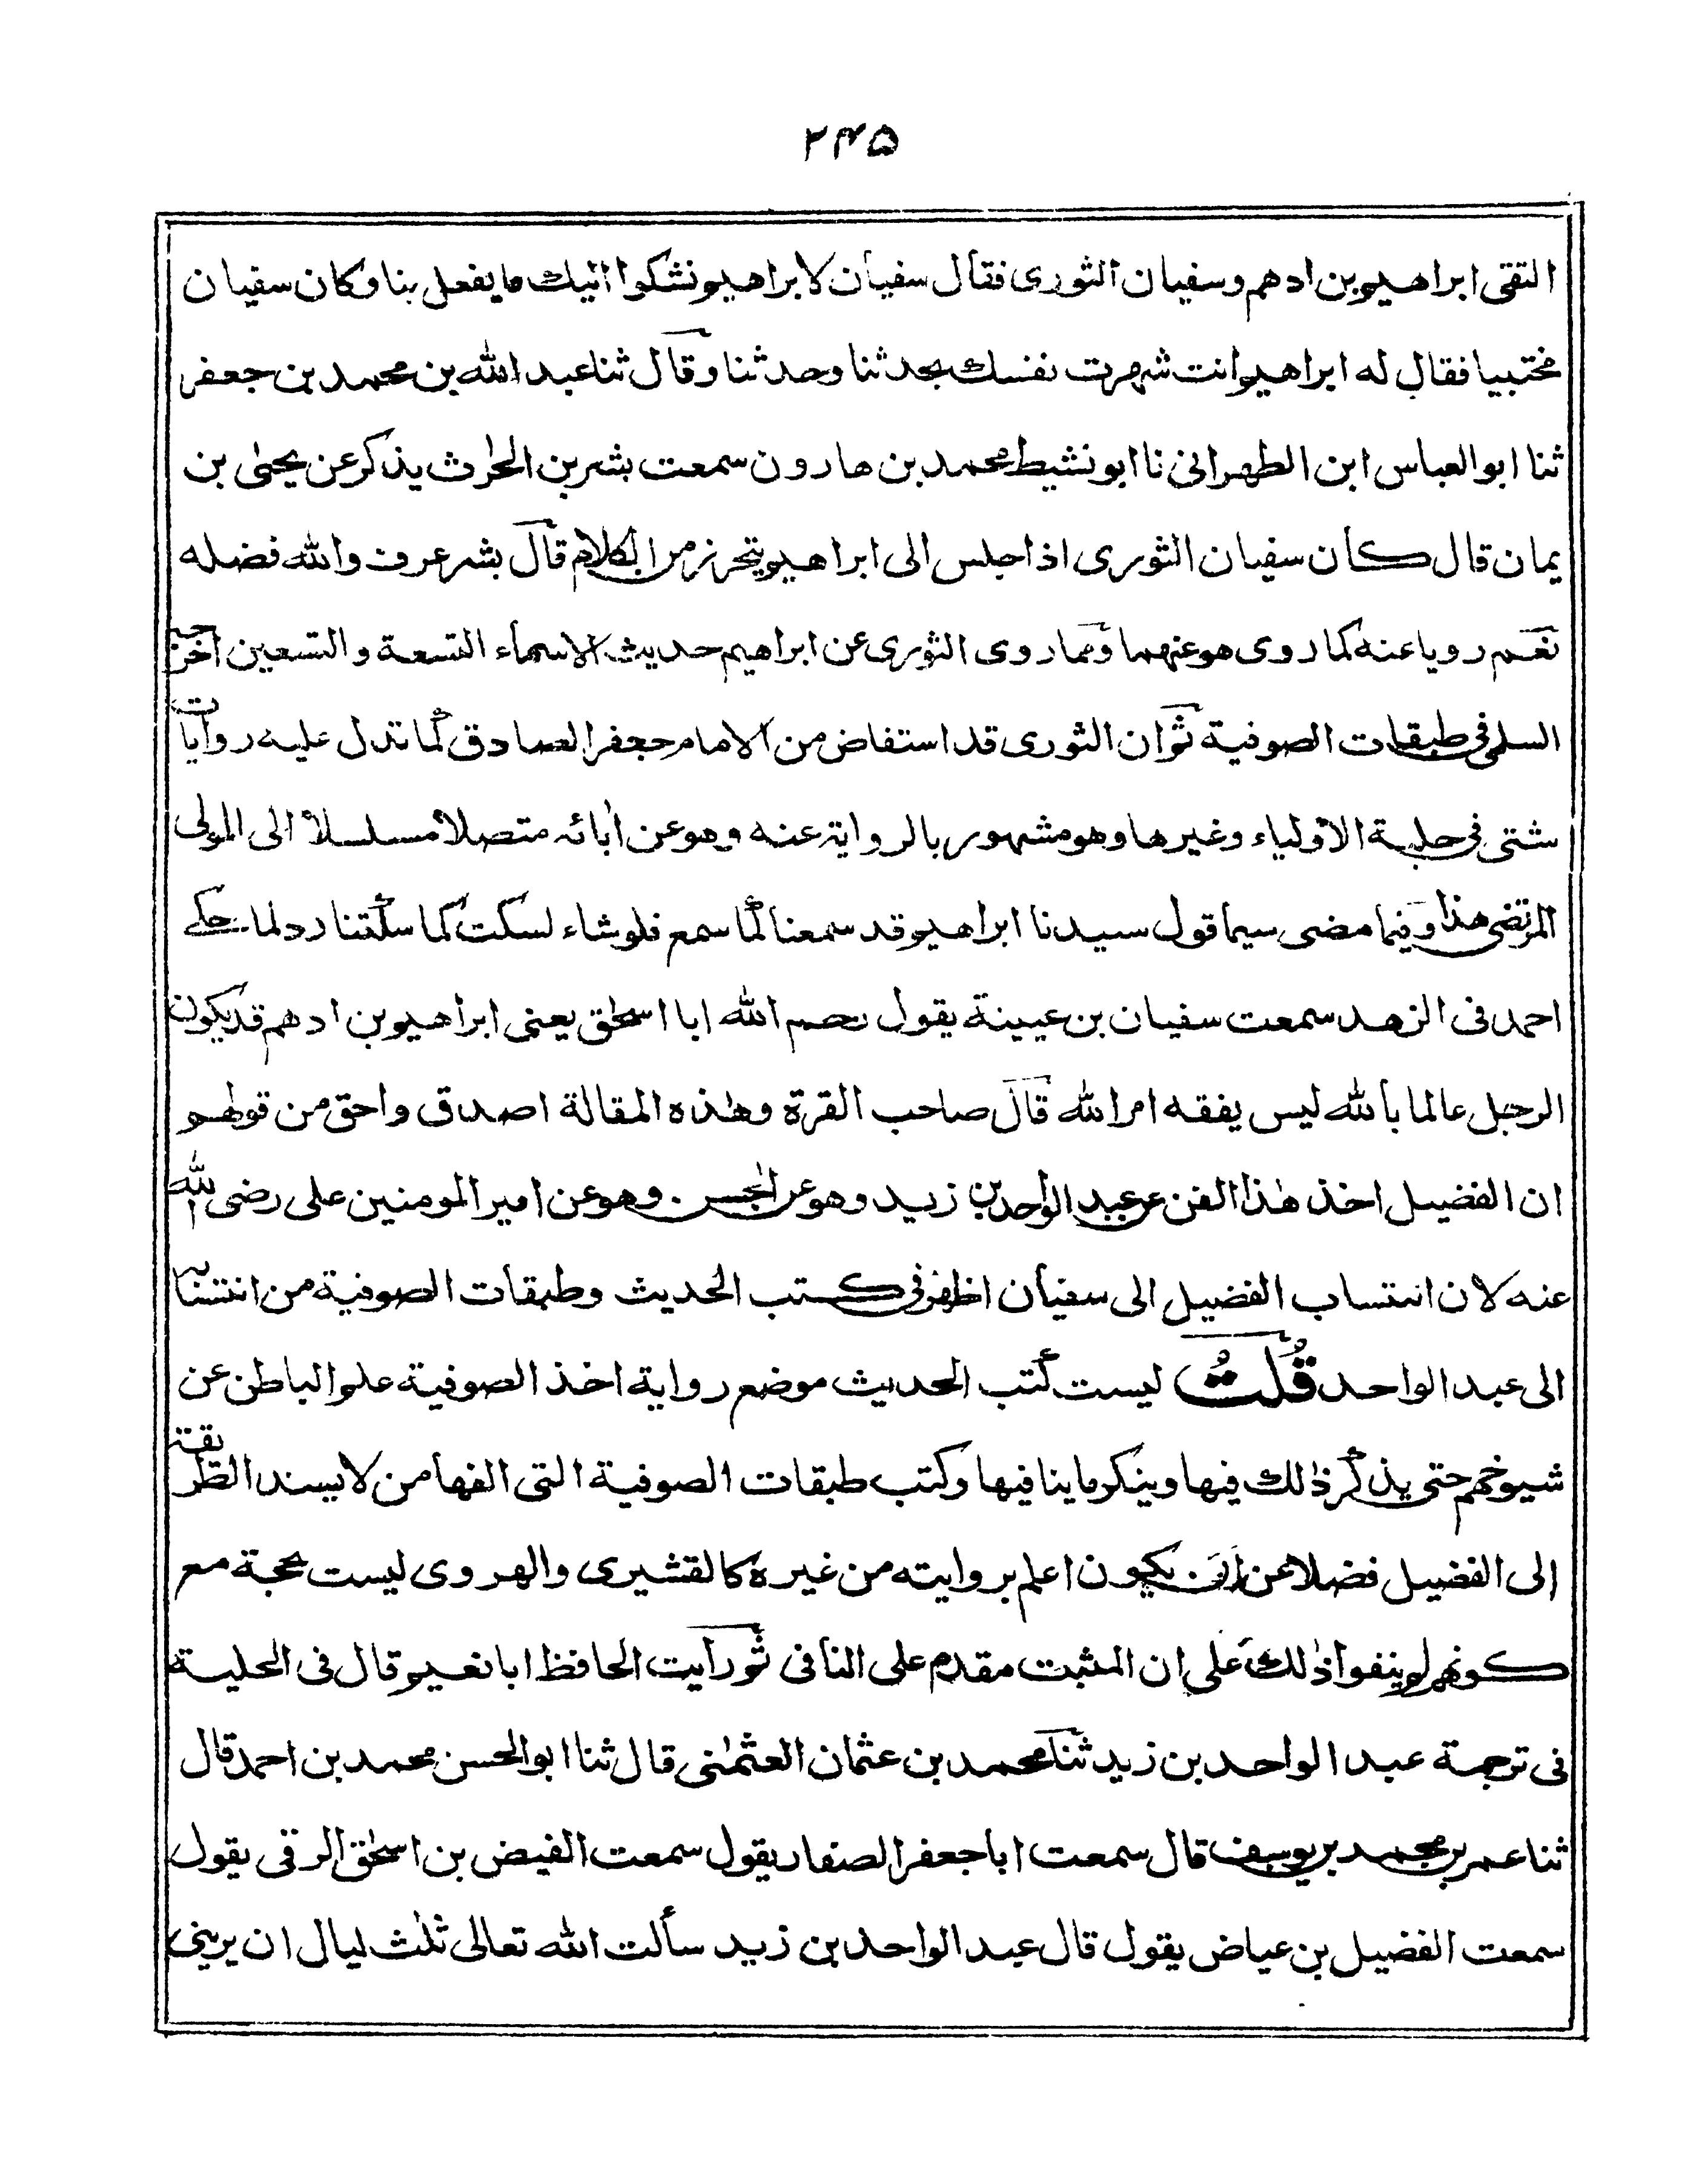 ۲۴۵
التقى ابراهيم بن ادهم وسفيان الثورى فقال سفيان لابراهيم نشكوا اليك ما يفعل بنا وكان سفيان
مختبيا فقال له ابراهيم انت شهرت نفسك بحدثنا وحدثنا وقال ثنا عبد الله بن محمد بن جعفر
ثنا ابو العباس ابن الطهرانى نا ابو نشيط محمد بن هارون سمعت بشر بن الحرٰث يذكر عن يحيىٰ بن
يمان قال كان سفيان الثورى اذا جلس الى ابراهيم يتحرز من الكلام قال بشر عرف والله فضله
نعم رويا عنه كما روى هو عنهما ومما روى الثورى عن ابراهيم حديث الاسماء التسعة والتسعين اخرجه
السلمى فى طبقات الصوفية ثم ان الثورى قد استفاض من الامام جعفر الصادق كما تدل عليه روايات
شتى فى حلية الاولياء وغيرها وهو مشهور بالرواية عنه وهو عن اٰبائه متصلا مسلسلا الى المولى
المرتضى هذا وفيما مضى سيما قول سيدنا ابراهيم قد سمعنا كما سمع فلو شاء لسكت كما سكتنا رد لما حكے
احمد فى الزهد سمعت سفيان بن عيينة يقول رحم الله ابا اسحٰق يعنى ابراهيم بن ادهم قد يكون
الرجل عالما بالله ليس يفقه امر الله قال صاحب القرة وهٰذه المقالة اصدق واحق من قولهم
ان الفضيل اخذ هٰذا الفن عن عبد الواحد بن زيد وهو عن الحسن وهو عن امير المومنين على رضى الله
عنه لان انتساب الفضيل الى سفيان اظهر فى كتب الحديث وطبقات الصوفية من انتسابه
الى عبد الواحد قُلتُ ليست كتب الحديث موضع رواية اخذ الصوفية علم الباطن عن
شيوخهم حتى يذكر ذٰلك فيها وينكر ما ينافيها وكتب طبقات الصوفية التى الفها من لا يسند الطريقة
الى الفضيل فضلا عن ان يكون اعلم بروايته من غيره كالقشيرى والهروى ليست بحجة مع
كونهم لم ينفوا ذٰلك على ان المثبت مقدم على النافى ثم رأيت الحافظ ابا نعيم قال فى الحلية
فى ترجمة عبد الواحد بن زيد ثنا محمد بن عثمان العثمٰنى قال ثنا ابو الحسن محمد بن احمد قال
ثنا عمر بن محمد بن يوسف قال سمعت ابا جعفر الصفار يقول سمعت الفيض بن اسحٰق الرقى يقول
سمعت الفضيل بن عياض يقول قال عبد الواحد بن زيد سألت الله تعالى ثلٰث ليال ان يرينى